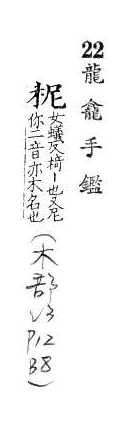 22龍龕手鑑
柅
女蟻反椅丨也又尼
你二音亦木名也
(木部
V3
P12
B8)